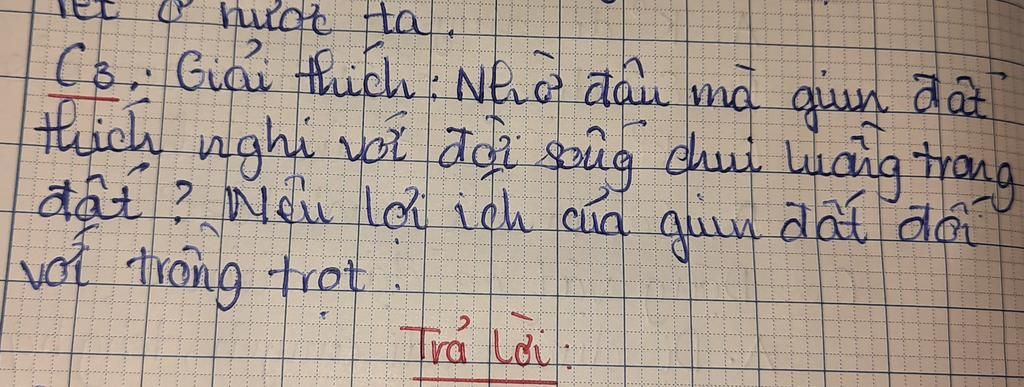 rét ở nước ta.
C3. Giải thích: Nhờ đâu mà giun đất
thích nghi với đời sống chui luồng trong
đất? Nêu lợi ích của giun đất đối
với trồng trọt.
Trả Lời: